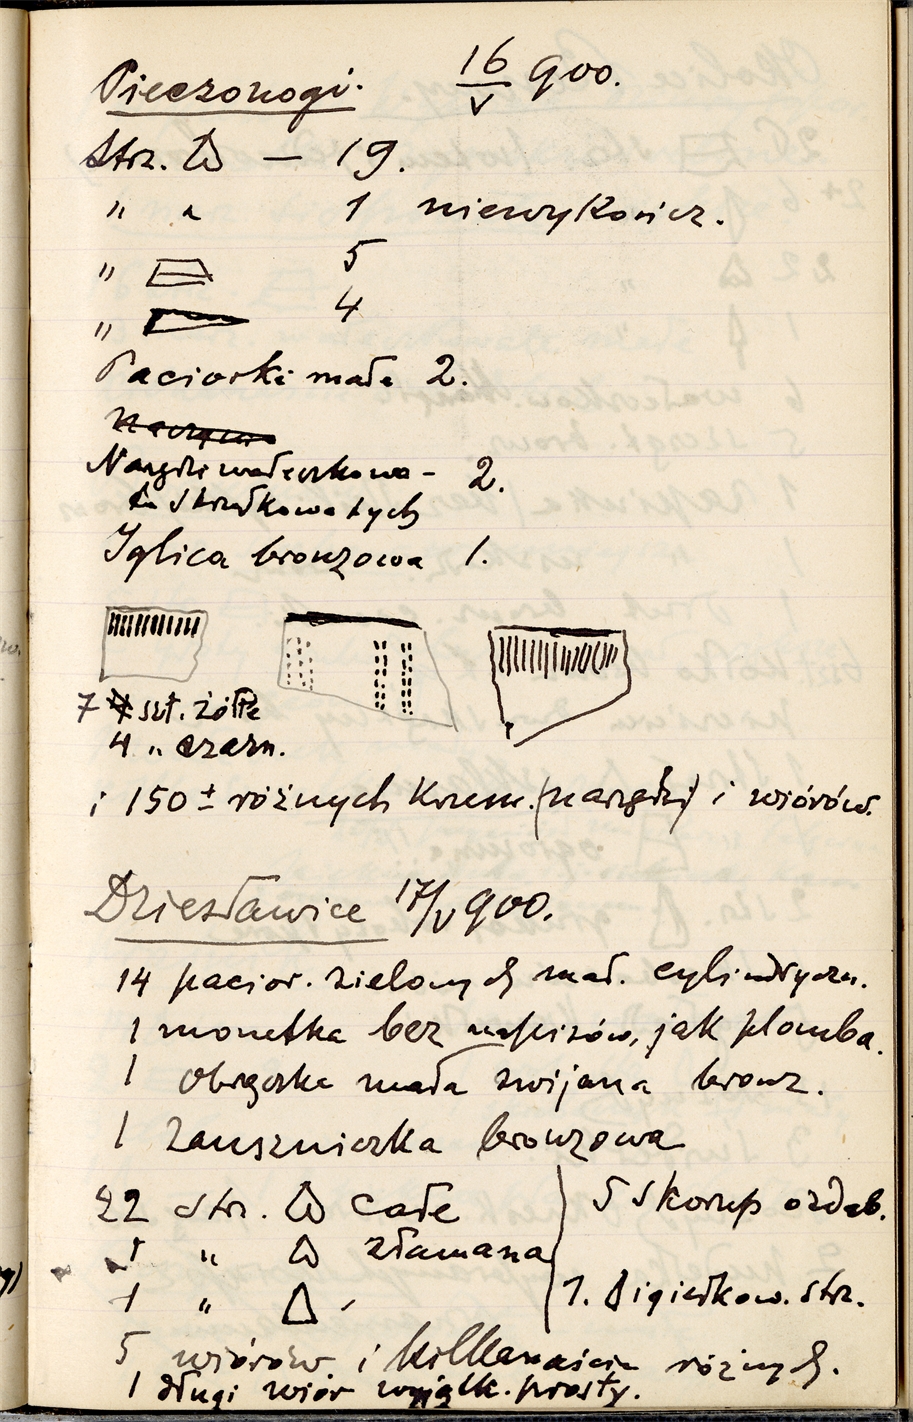 Pieczonogi. 16/V 900.
Strz. — 19.
" " 1 niewykończ.
" 5
" 4
Paciorki małe 2.
Narzędzi wałeczkowa- 2.
Iglica bronzowa 1.
7 szt. żółte
4 „ czarn.
i 150 ± różnych krzem. (narzędzi) i wiórów.
Dziesławice 17/V 900.
14 pacior. zielonych mał. cylindryczn.
1 monetka bez napisów, jak plomba.
1 obrączka mała zwijana bronz.
1 Zauszniczka bronzowa
22 strz. całe
1 " złamana
1 "
5 skorup ozdob.
1. igiełkow. strz.
5 wiórów i kilkanaście różnych.
1 długi wiór wyjątk. prosty.